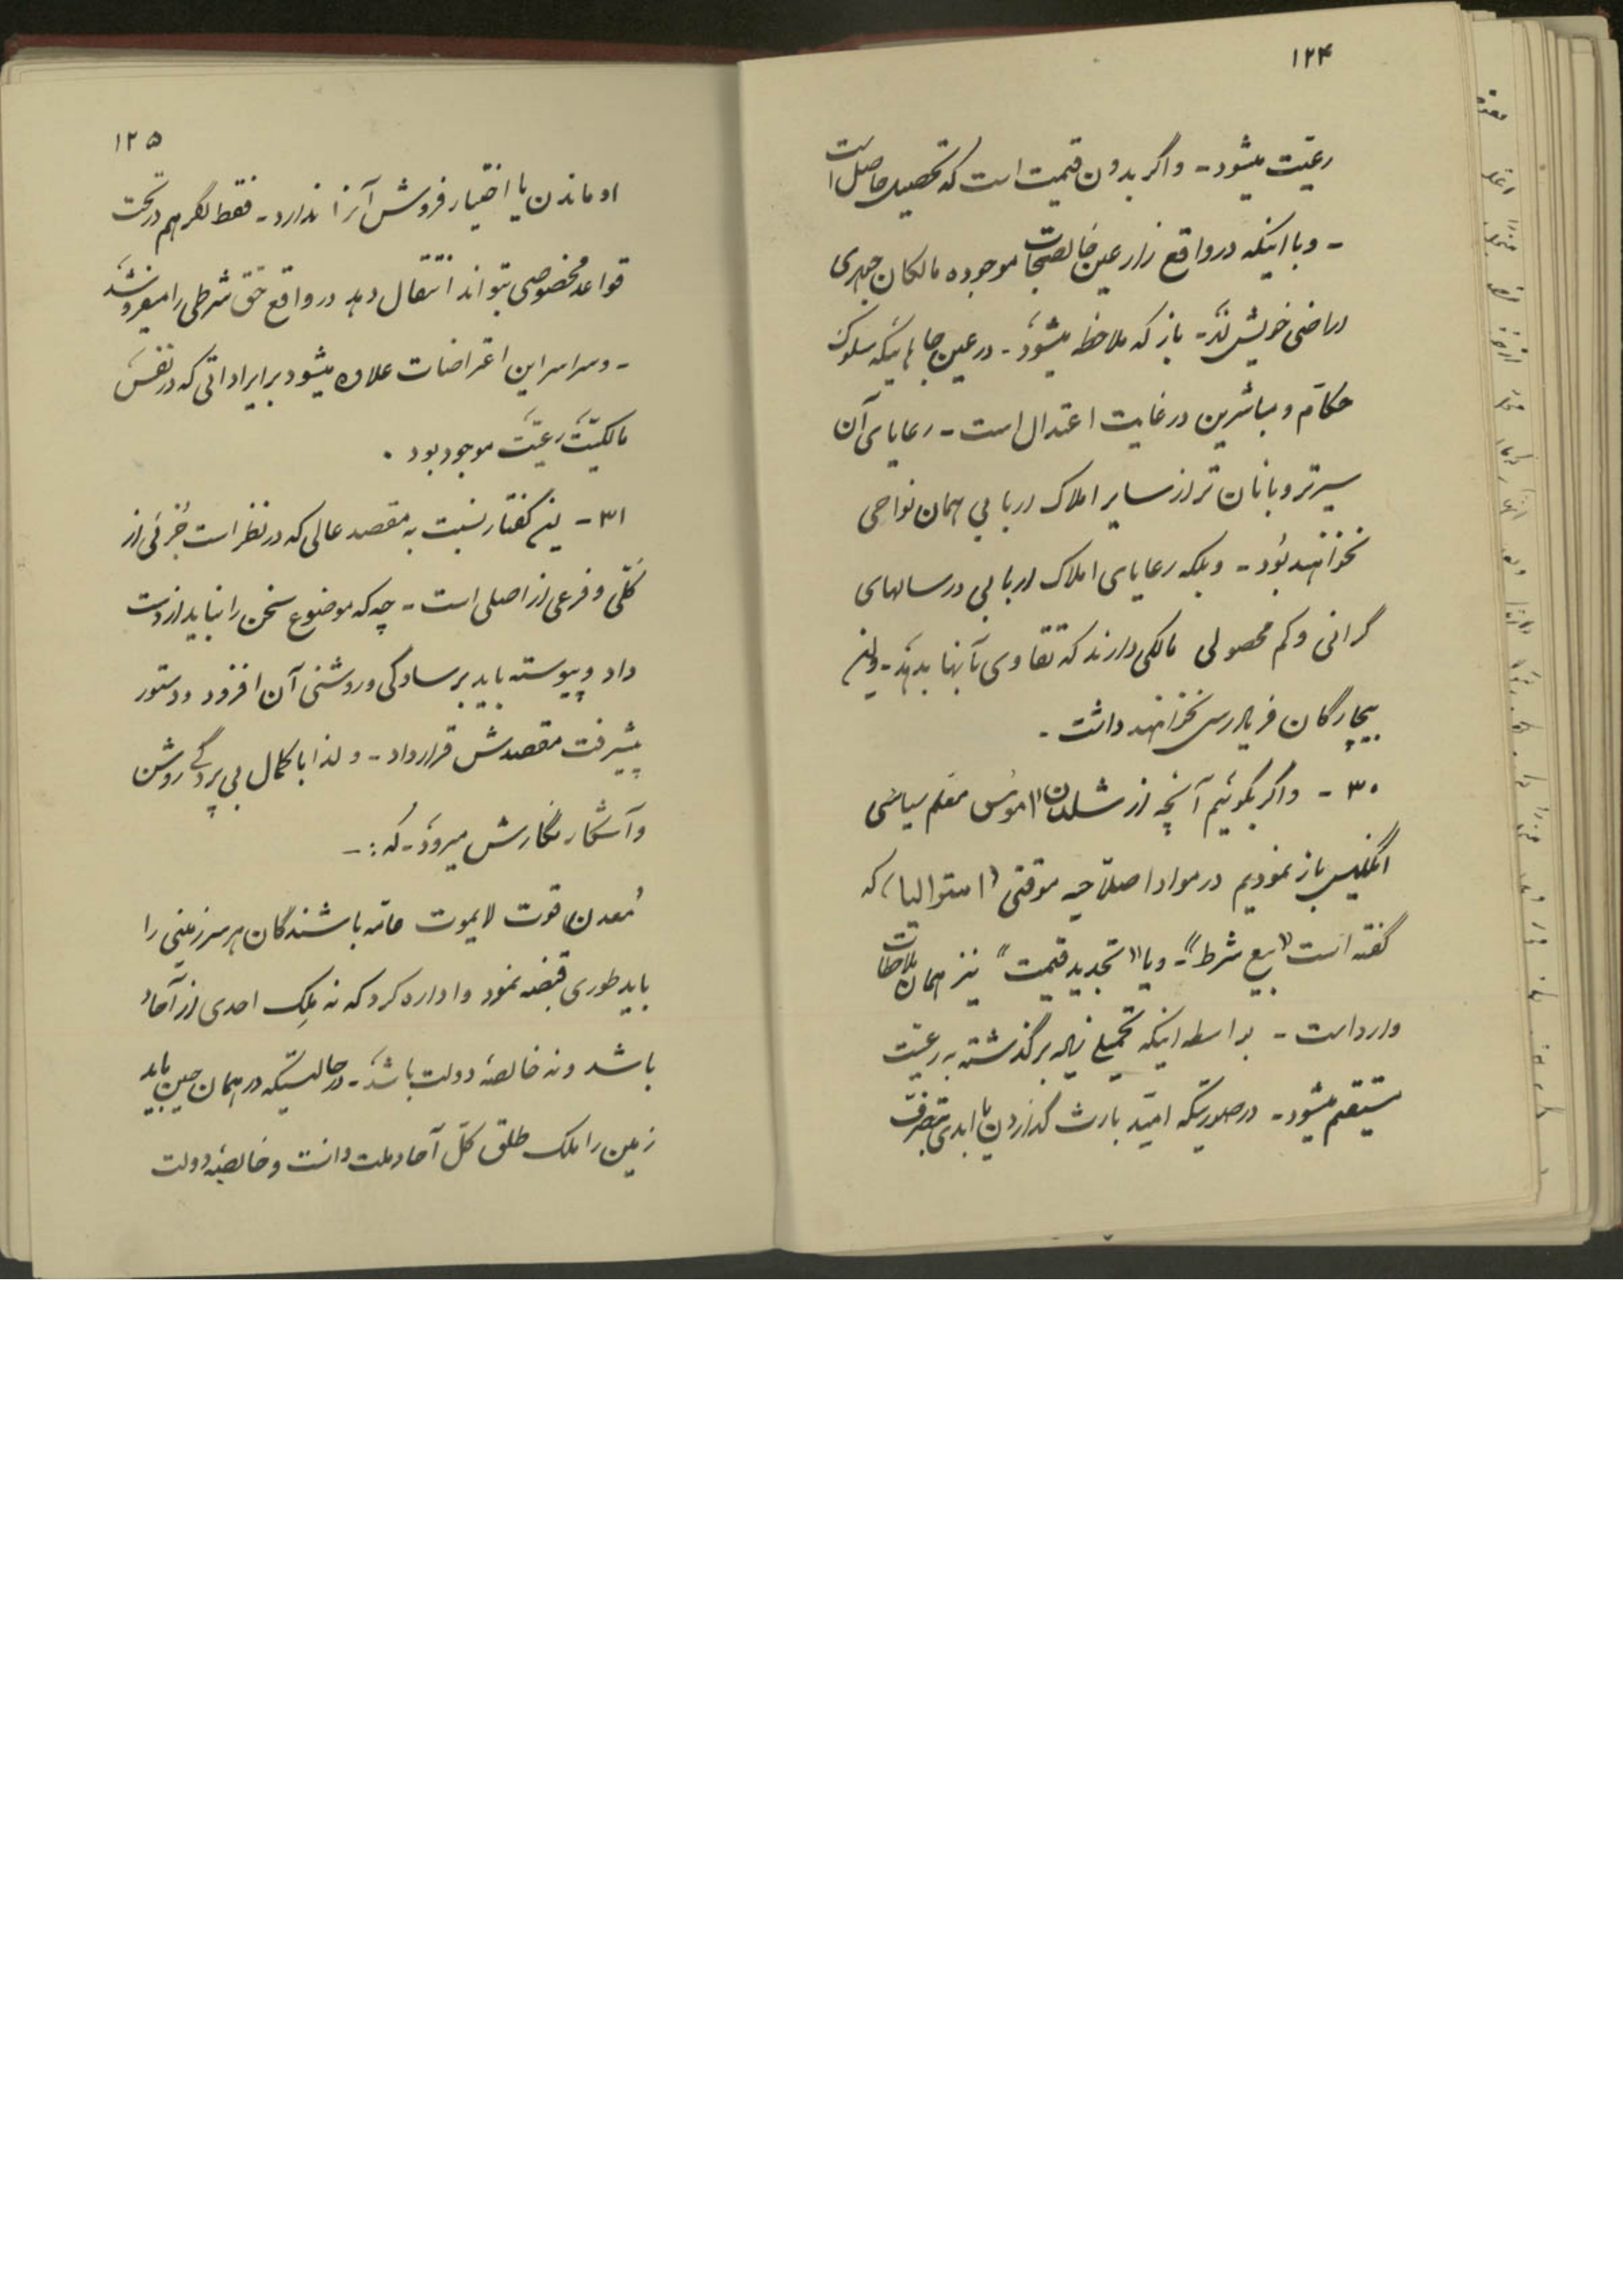 ۱۲۴
رعیّت میشود - و اگر بدون قیمت است که تحصیل حاصل است
- و با اینکه در واقع زارعین خالصجات موجوده مالکان جبری
اراضی خویش‌اند - باز که ملاحظه میشود - در عین جاهائیکه سلوک
حکام و مباشرین در غایت اعتدال است - رعایای آن
سیرتر و بانان تر از سایر املاک اربابی همان نواحی
نخواهند بود - و بلکه رعایای املاک اربابی در سالهای
گرانی و کم محصولی مالکی دارند که تقاوی بآنها بدهد - و این
بیچارگان فریادرسی نخواهند داشت -
۳۰ - و اگر بگوئیم آنچه از شلدن اموُس معلم سیاسی
انگلیس باز نمودیم در مواد اصلاحیه موقتی (استرالیا) که
گفته است "بیع شرط" - و یا "تجدید قیمت" نیز همان ملاحظات
وارد است - بواسطه اینکه تحمیلی زیاد بر گذشته به رعیّت
مستقیم میشود - در صورتیکه امّید بارث گذاردن یا ابدی بتصرف
۱۲۵
او ماندن یا اختیار فروش آنرا ندارد - فقط اگر هم در تحت
قواعد مخصوصی بتواند انتقال دهد در واقع حق شرطی را میفروشد
- و سراسر این اعتراضات علاوه میشود بر ایراداتی که در نفس
مالکیّت رعیّت موجود بود .
۳۱ - این گفتار نسبت به مقصد عالی که در نظر است جُزئی از
کُلّی و فرعی از اصلی است - چه که موضوع سخن را نباید از دست
داد و پیوسته باید بر سادگی و روشنی آن افزود و دستور
پیشرفت مقصدش قرار داد - و لذا با کمال بی پردگی روشن
و آشکار نگارش میرود - که : -
مُعدن قوت لایموت عامّه باشندگان هر سرزمینی را
باید طوری قبضه نمود و اداره کرد که نه مِلک احدی از آحاد
باشد و نه خالصهٔ دولت باشد - در حالتیکه در همان حین باید
زمین را ملک طلق کلّ آحاد ملت دانست و خالصهٔ دولت